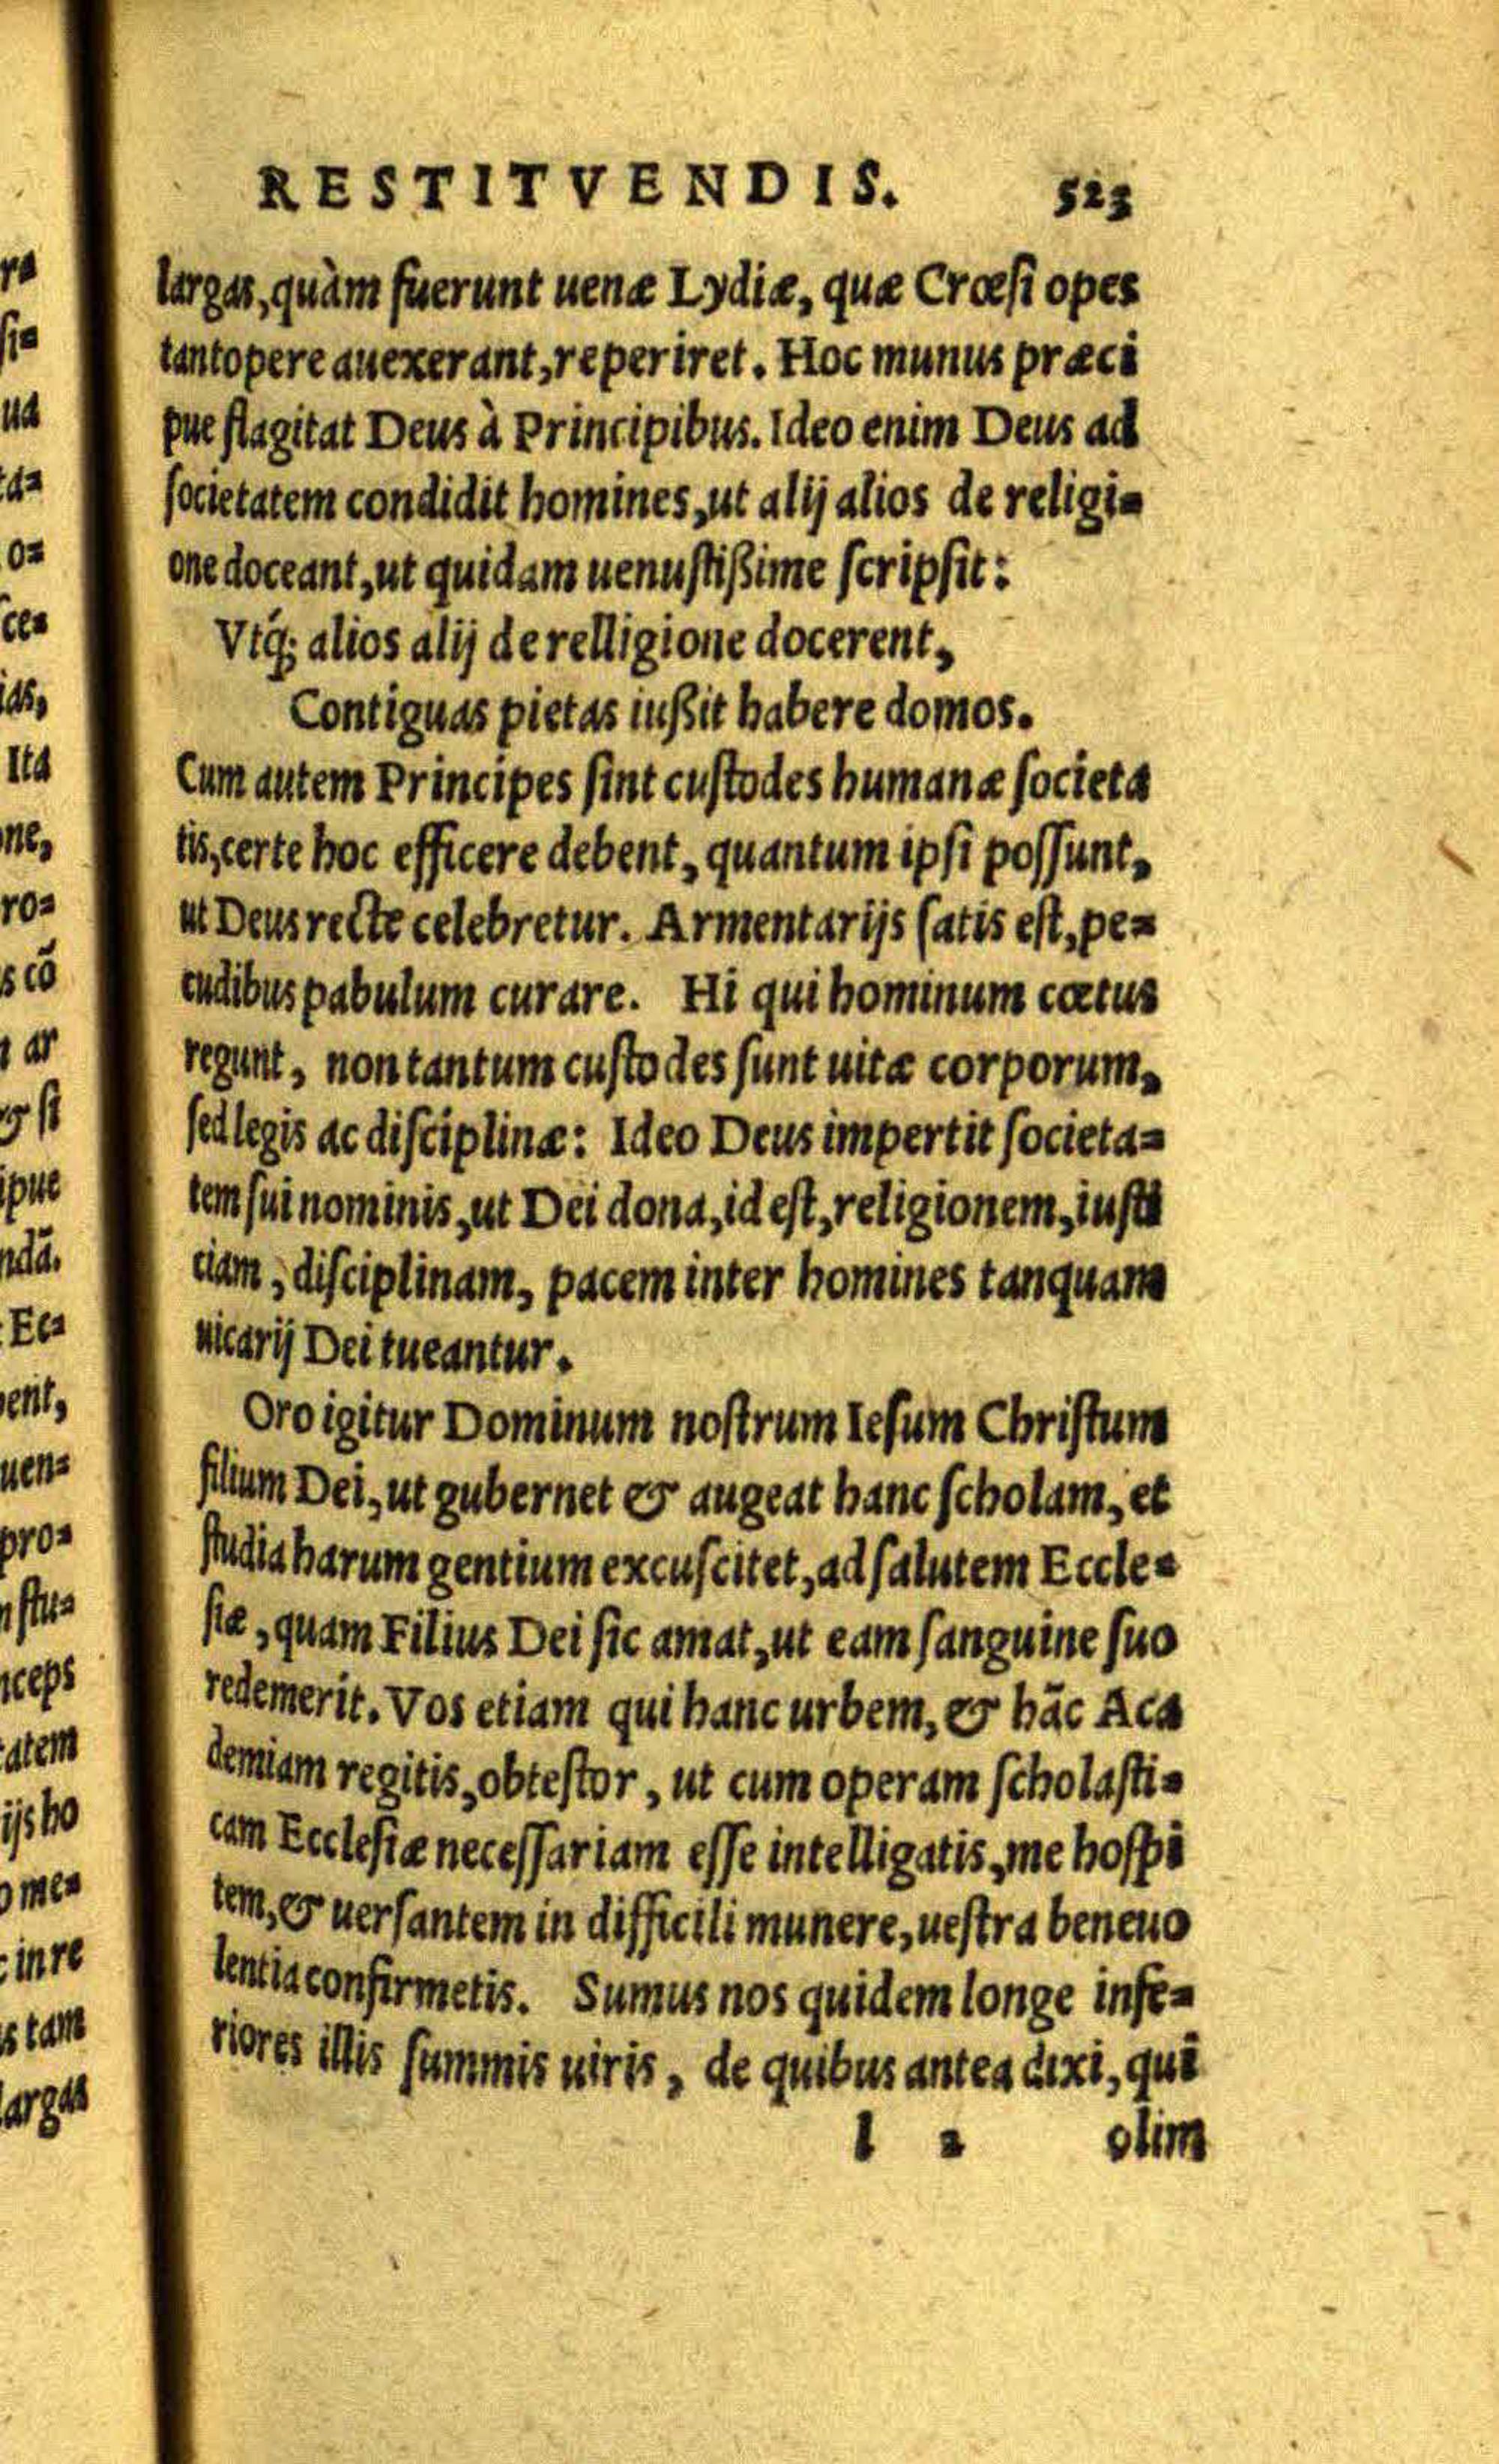 RESTITVENDIS. 523
largas, quàm fuerunt uenæ Lydiæ, quæ Crœsi opes
tantopere auexerant, reperiret. Hoc munus præci
pue flagitat Deus à Principibus. Ideo enim Deus ad
societatem condidit homines, ut alij alios de religi=
one doceant, ut quidam uenustißime scripsit:
Vtq́; alios alij de relligione docerent,
Contiguas pietas iußit habere domos.
Cum autem Principes sint custodes humanæ societa
tis, certe hoc efficere debent, quantum ipsi possunt,
ut Deus recte celebretur. Armentarijs satis est, pe=
cudibus pabulum curare. Hi qui hominum cœtus
regunt, non tantum custodes sunt uitæ corporum,
sed legis ac disciplinæ: Ideo Deus impertit societa=
tem sui nominis, ut Dei dona, id est, religionem, iusti
ciam, disciplinam, pacem inter homines tanquam
uicarij Dei tueantur.
Oro igitur Dominum nostrum Iesum Christum
filium Dei, ut gubernet & augeat hanc scholam, et
studia harum gentium excuscitet, ad salutem Eccle=
siæ, quam Filius Dei sic amat, ut eam sanguine suo
redemerit. Vos etiam qui hanc urbem, & hāc Aca
demiam regitis, obtestor, ut cum operam scholasti=
cam Ecclesiæ necessariam esse intelligatis, me hospi
tem, & uersantem in difficili munere, uestra beneuo
lentia confirmetis. Sumus nos quidem longe infe=
riores illis summis uiris, de quibus antea dixi, qui
l 2 olim